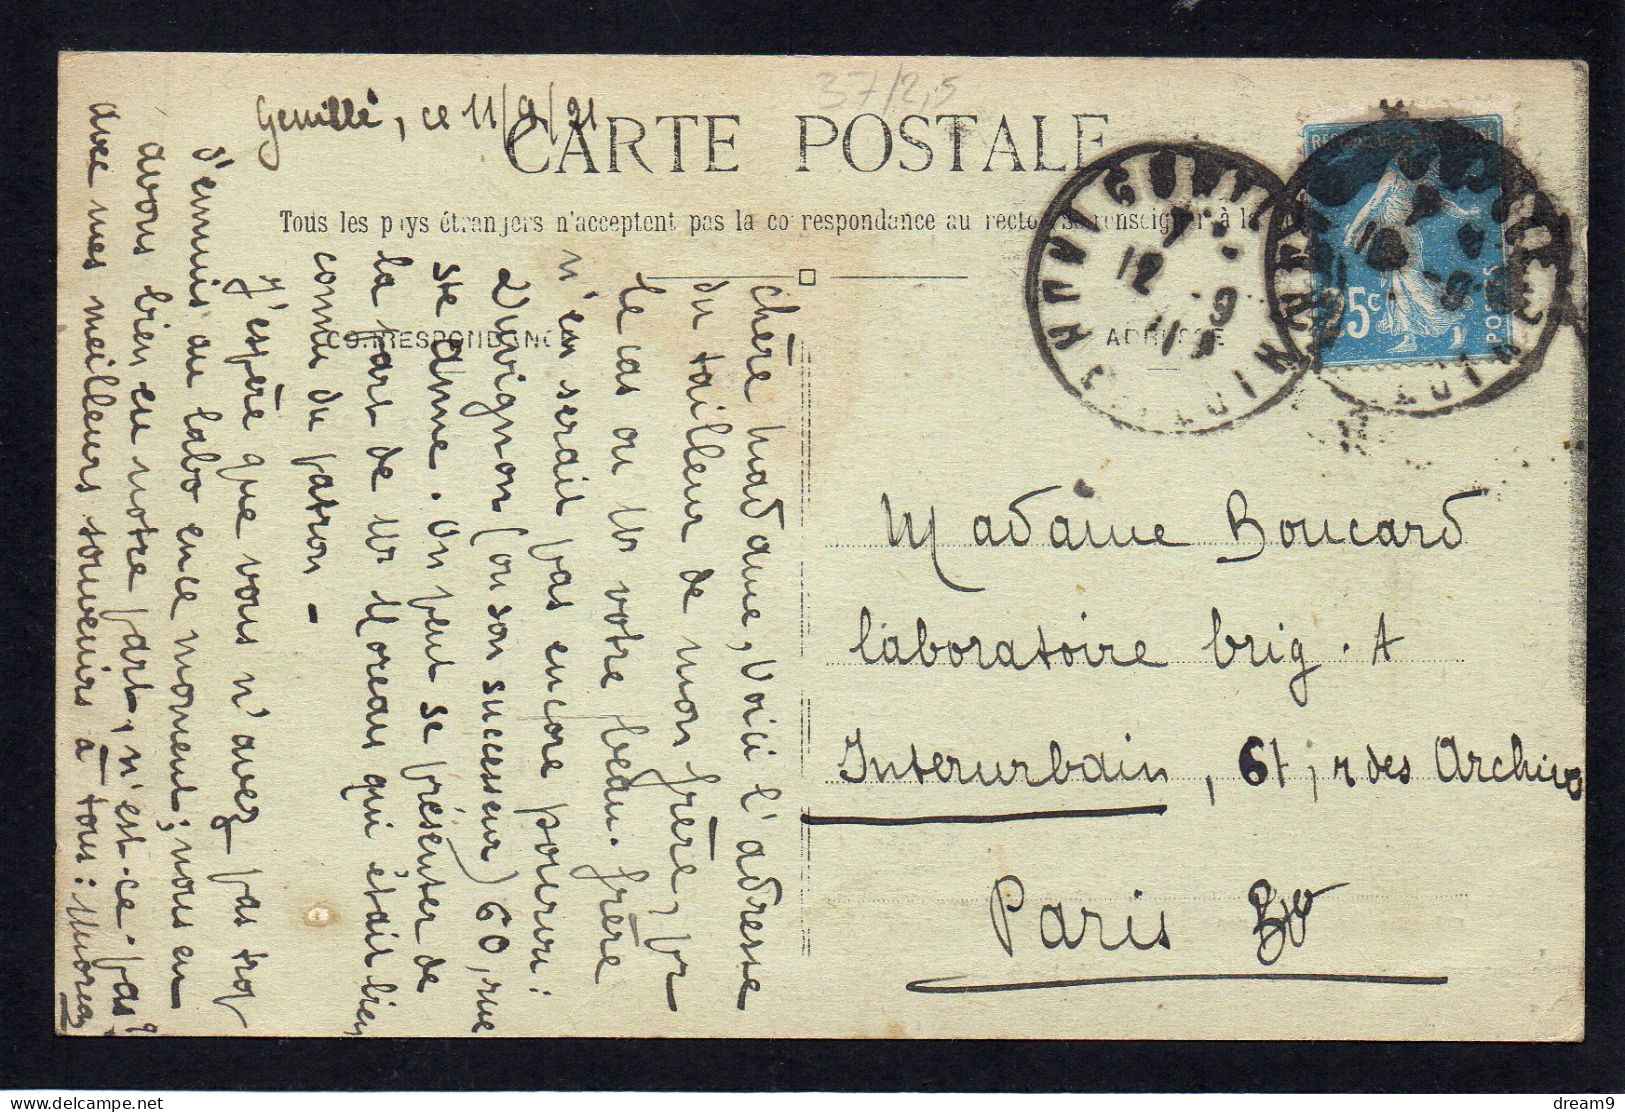 37/2,5
Genillé, ce 11/9/21
CARTE POSTALE
Tous les pays étrangers n'acceptent pas la correspondance au recto. Se renseigner à la
CORRESPONDANCE
ADRESSE
chère Madame, Voici l'adresse
du tailleur de mon frère, pr
le cas ou Mr votre beau-frère
n'en serait pas encore pourvu :
Duvignon (ou son successeur) 60, rue
Ste Anne. On peut se présenter de
la part de Mr Moreau qui était bien
connu du patron -
J'espère que vous n'avez pas trop
d'ennuis au labo en ce moment ; nous en
avons bien eu notre part, n'est-ce-pas ?
avec mes meilleurs souvenirs à tous : Moreau
Madame Boucard
laboratoire brig. A
Interurbain, 61, r des Archives
Paris 3e
12 - 9
25c
POSTES